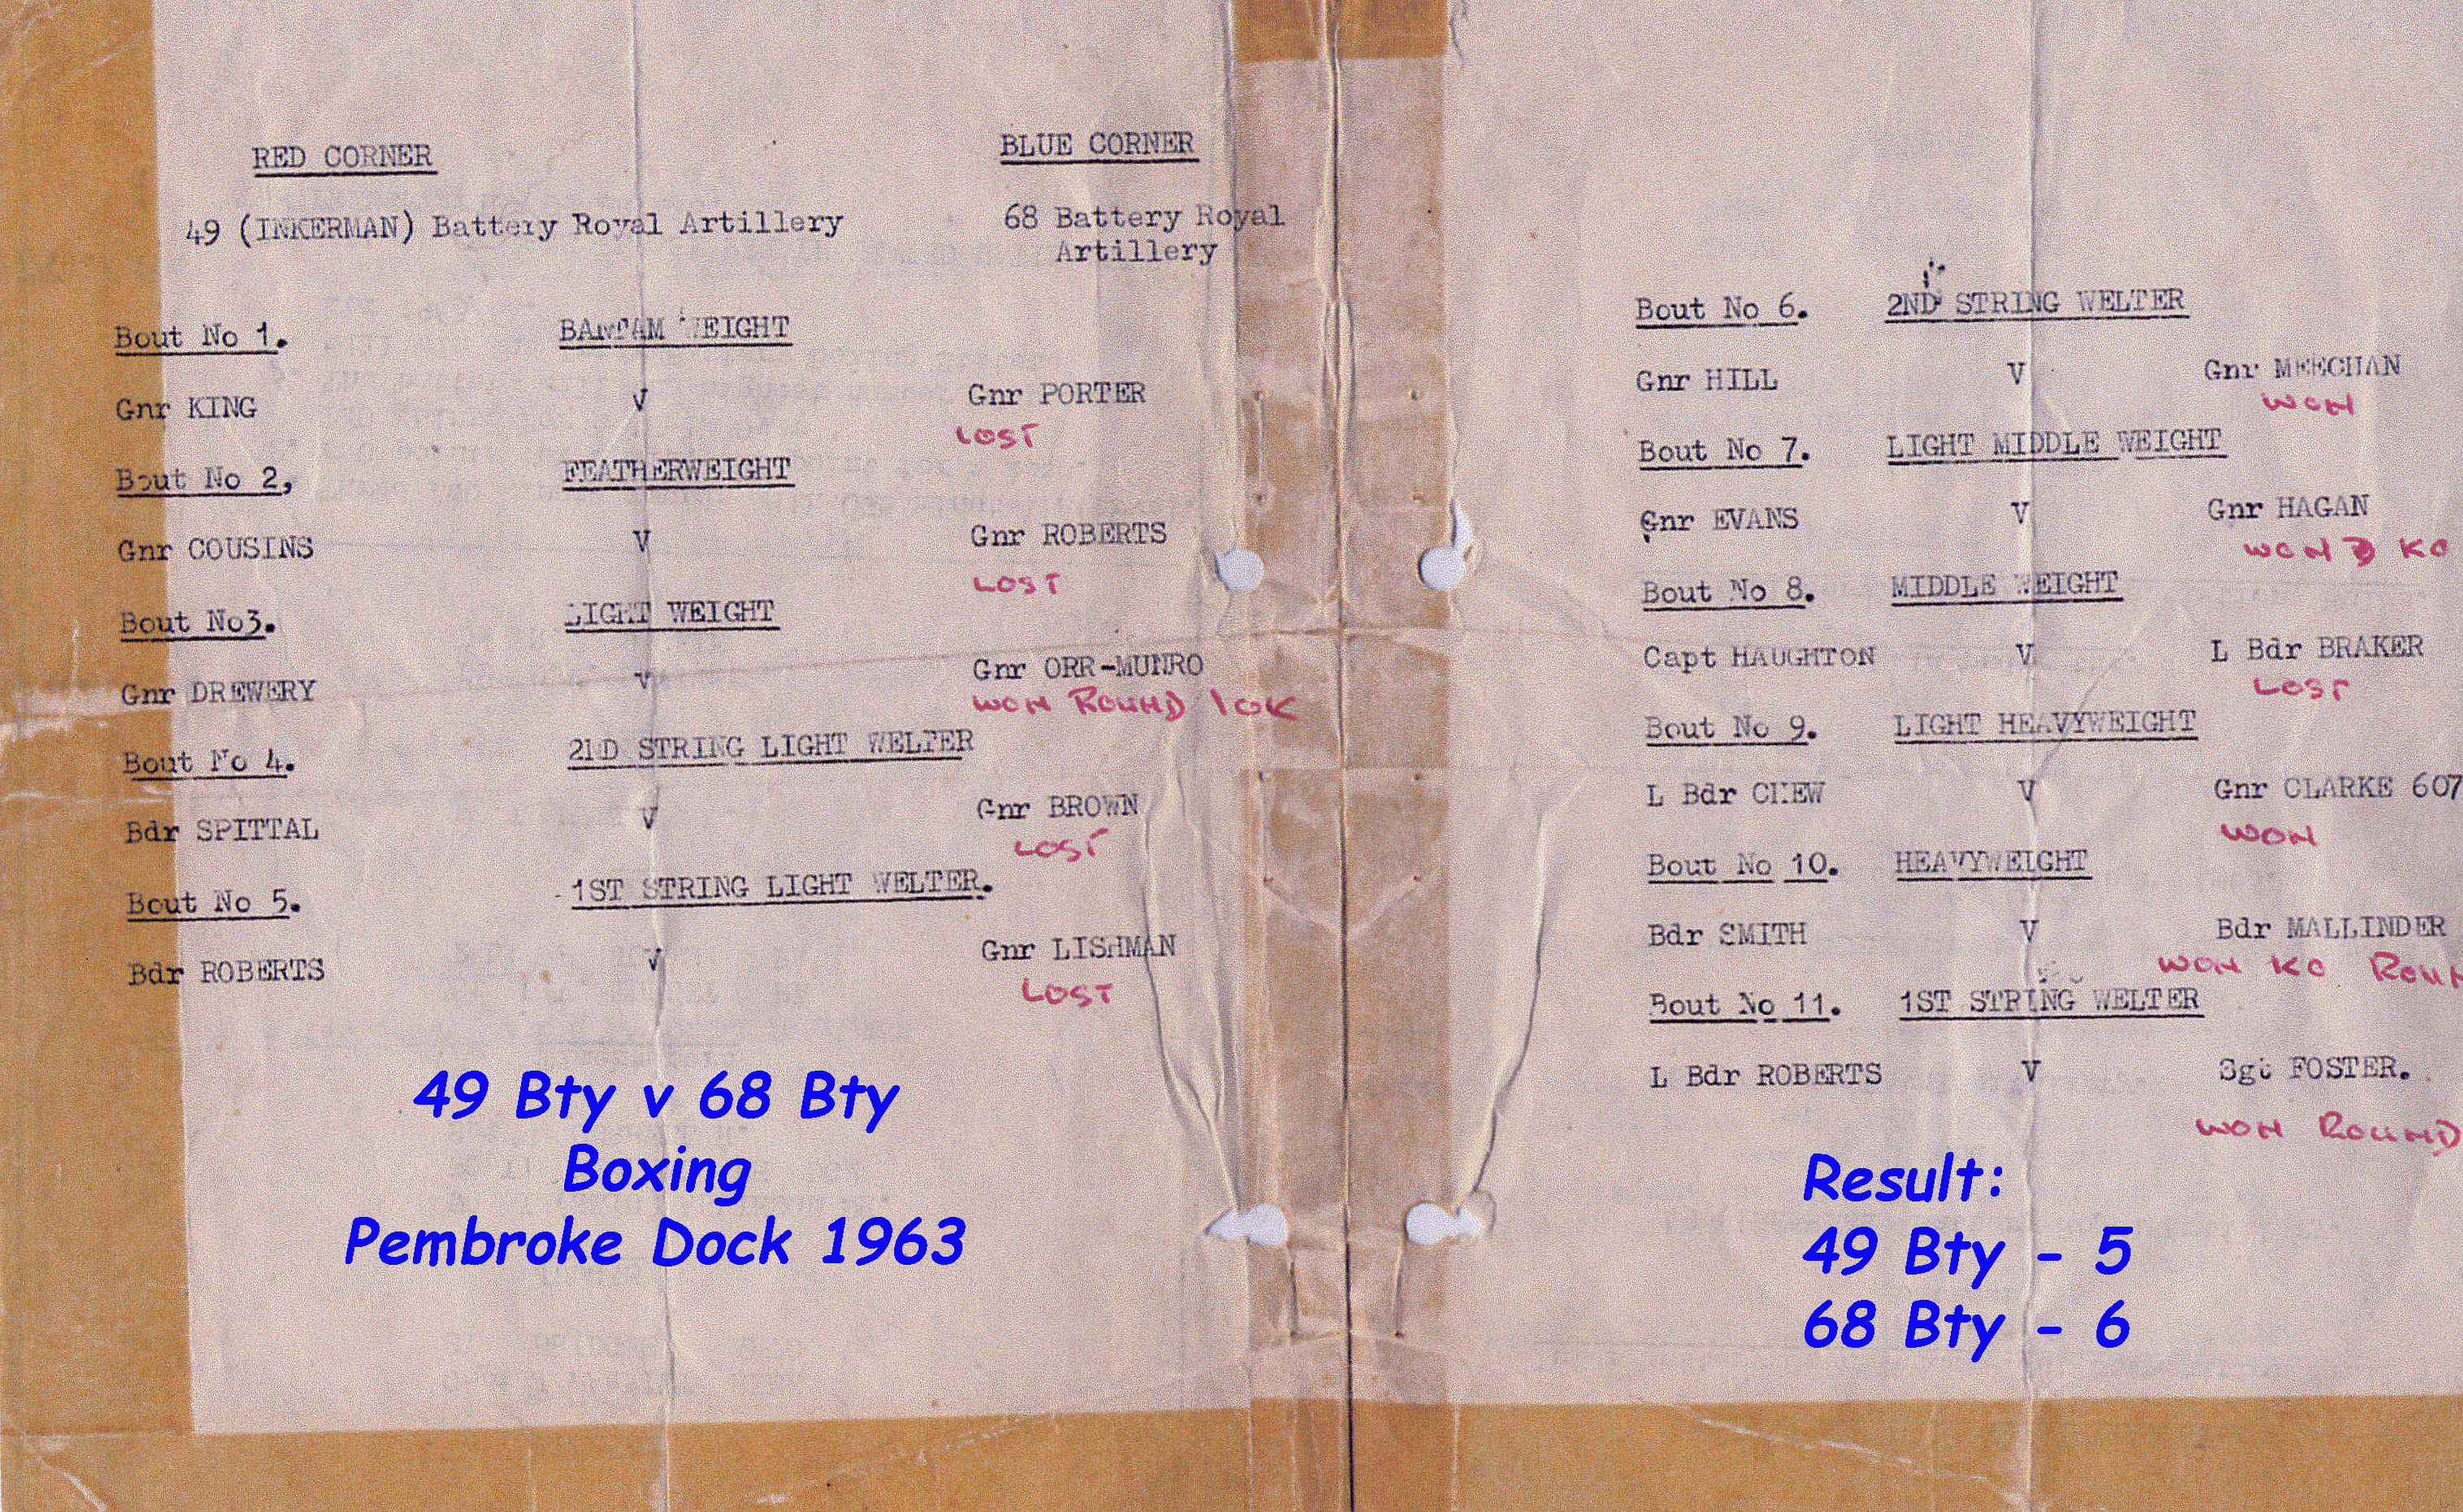 RED CORNER
BLUE CORNER
49 (INKERMAN) Battery Royal Artillery
68 Battery Royal
Artillery
Bout No 1. BANTAM WEIGHT
Gnr KING V Gnr PORTER
LOST
Bout No 2, FEATHERWEIGHT
Gnr COUSINS V Gnr ROBERTS
LOST
Bout No3. LIGHT WEIGHT
Gnr DREWERY V Gnr ORR-MUNRO
WON ROUND 1 OK
Bout No 4. 2ND STRING LIGHT WELTER
Bdr SPITTAL V Gnr BROWN
LOST
Bout No 5. 1ST STRING LIGHT WELTER.
Bdr ROBERTS V Gnr LISHMAN
LOST
49 Bty v 68 Bty
Boxing
Pembroke Dock 1963
Bout No 6. 2ND STRING WELTER
Gnr HILL V Gnr MEECHAN
WON
Bout No 7. LIGHT MIDDLE WEIGHT
Gnr EVANS V Gnr HAGAN
WON KO
Bout No 8. MIDDLE WEIGHT
Capt HAUGHTON V L Bdr BRAKER
LOST
Bout No 9. LIGHT HEAVYWEIGHT
L Bdr V Gnr CLARKE 607
WON
Bout No 10. HEAVYWEIGHT
Bdr SMITH V Bdr MALLINDER
WON KO ROUN
Bout No 11. 1ST STRING WELTER
L Bdr ROBERTS V Sgt FOSTER.
WON ROUND
Result:
49 Bty - 5
68 Bty - 6